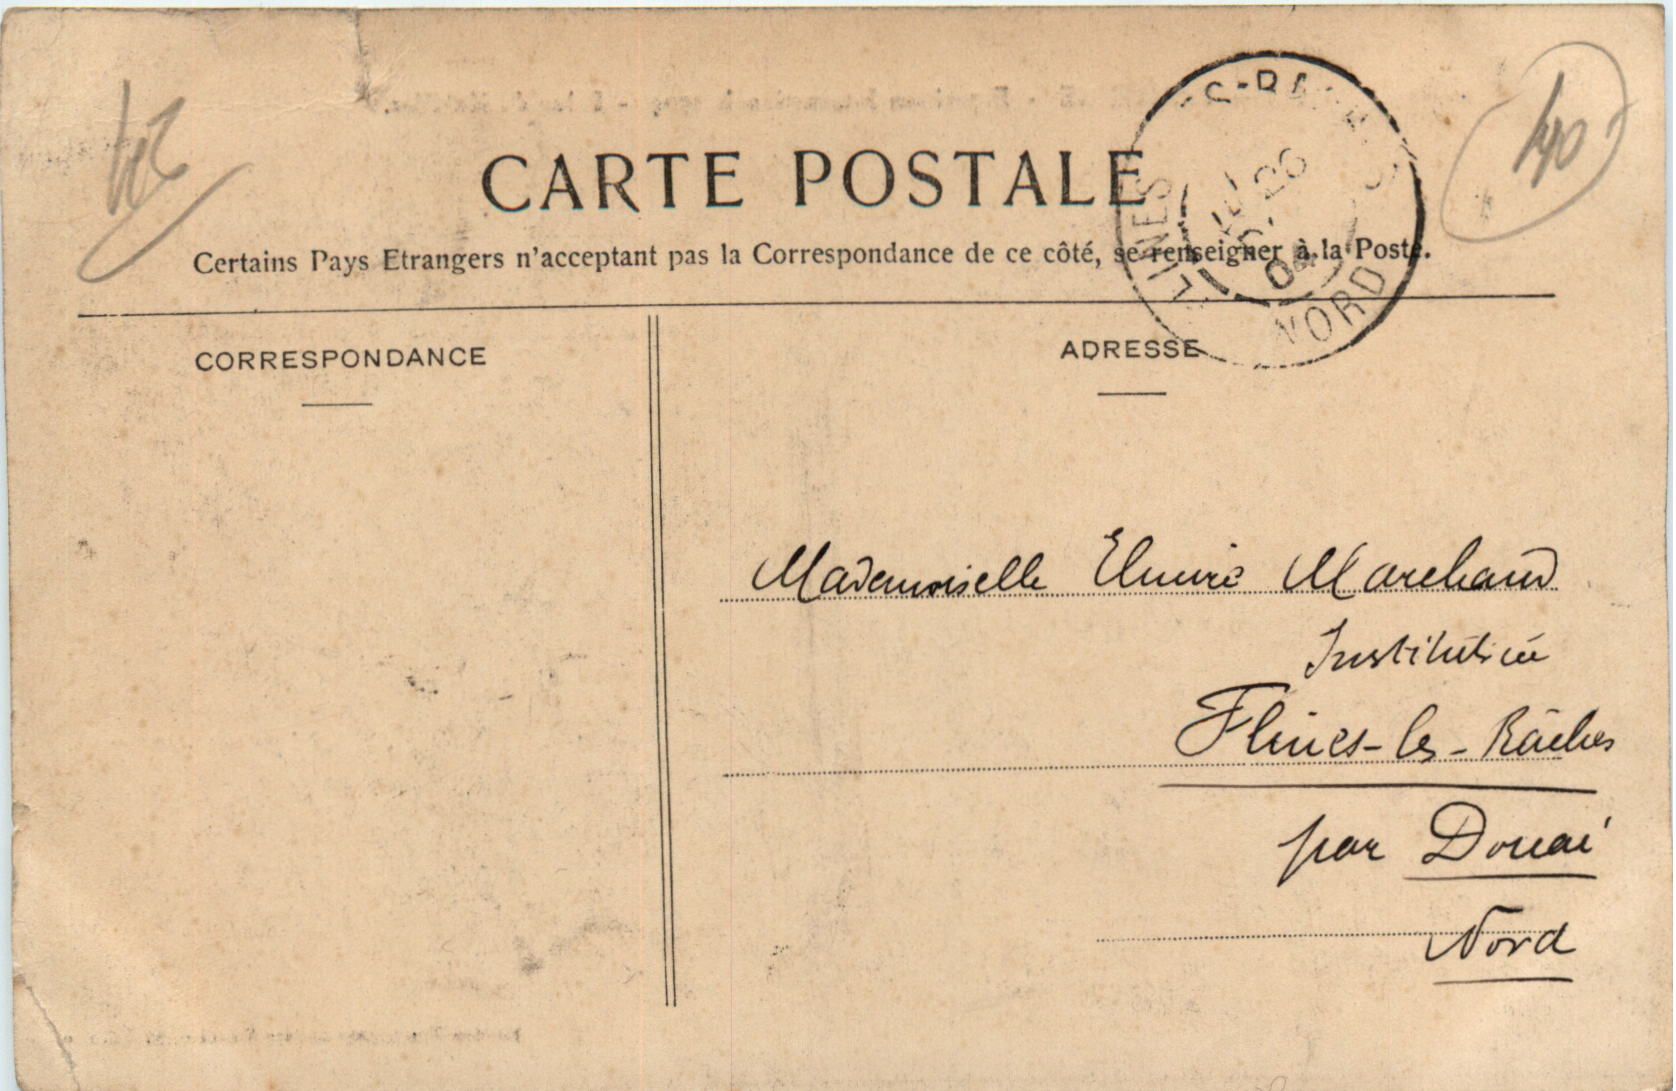 CARTE POSTALE
Certains Pays Etrangers n'acceptant pas la Correspondance de ce côté, se renseigner à la Poste.
FLINES-LES-RACHES
NORD
40
CORRESPONDANCE
ADRESSE
Mademoiselle Elmire Marchand
Flines-les-Râches
par Douai
Nord